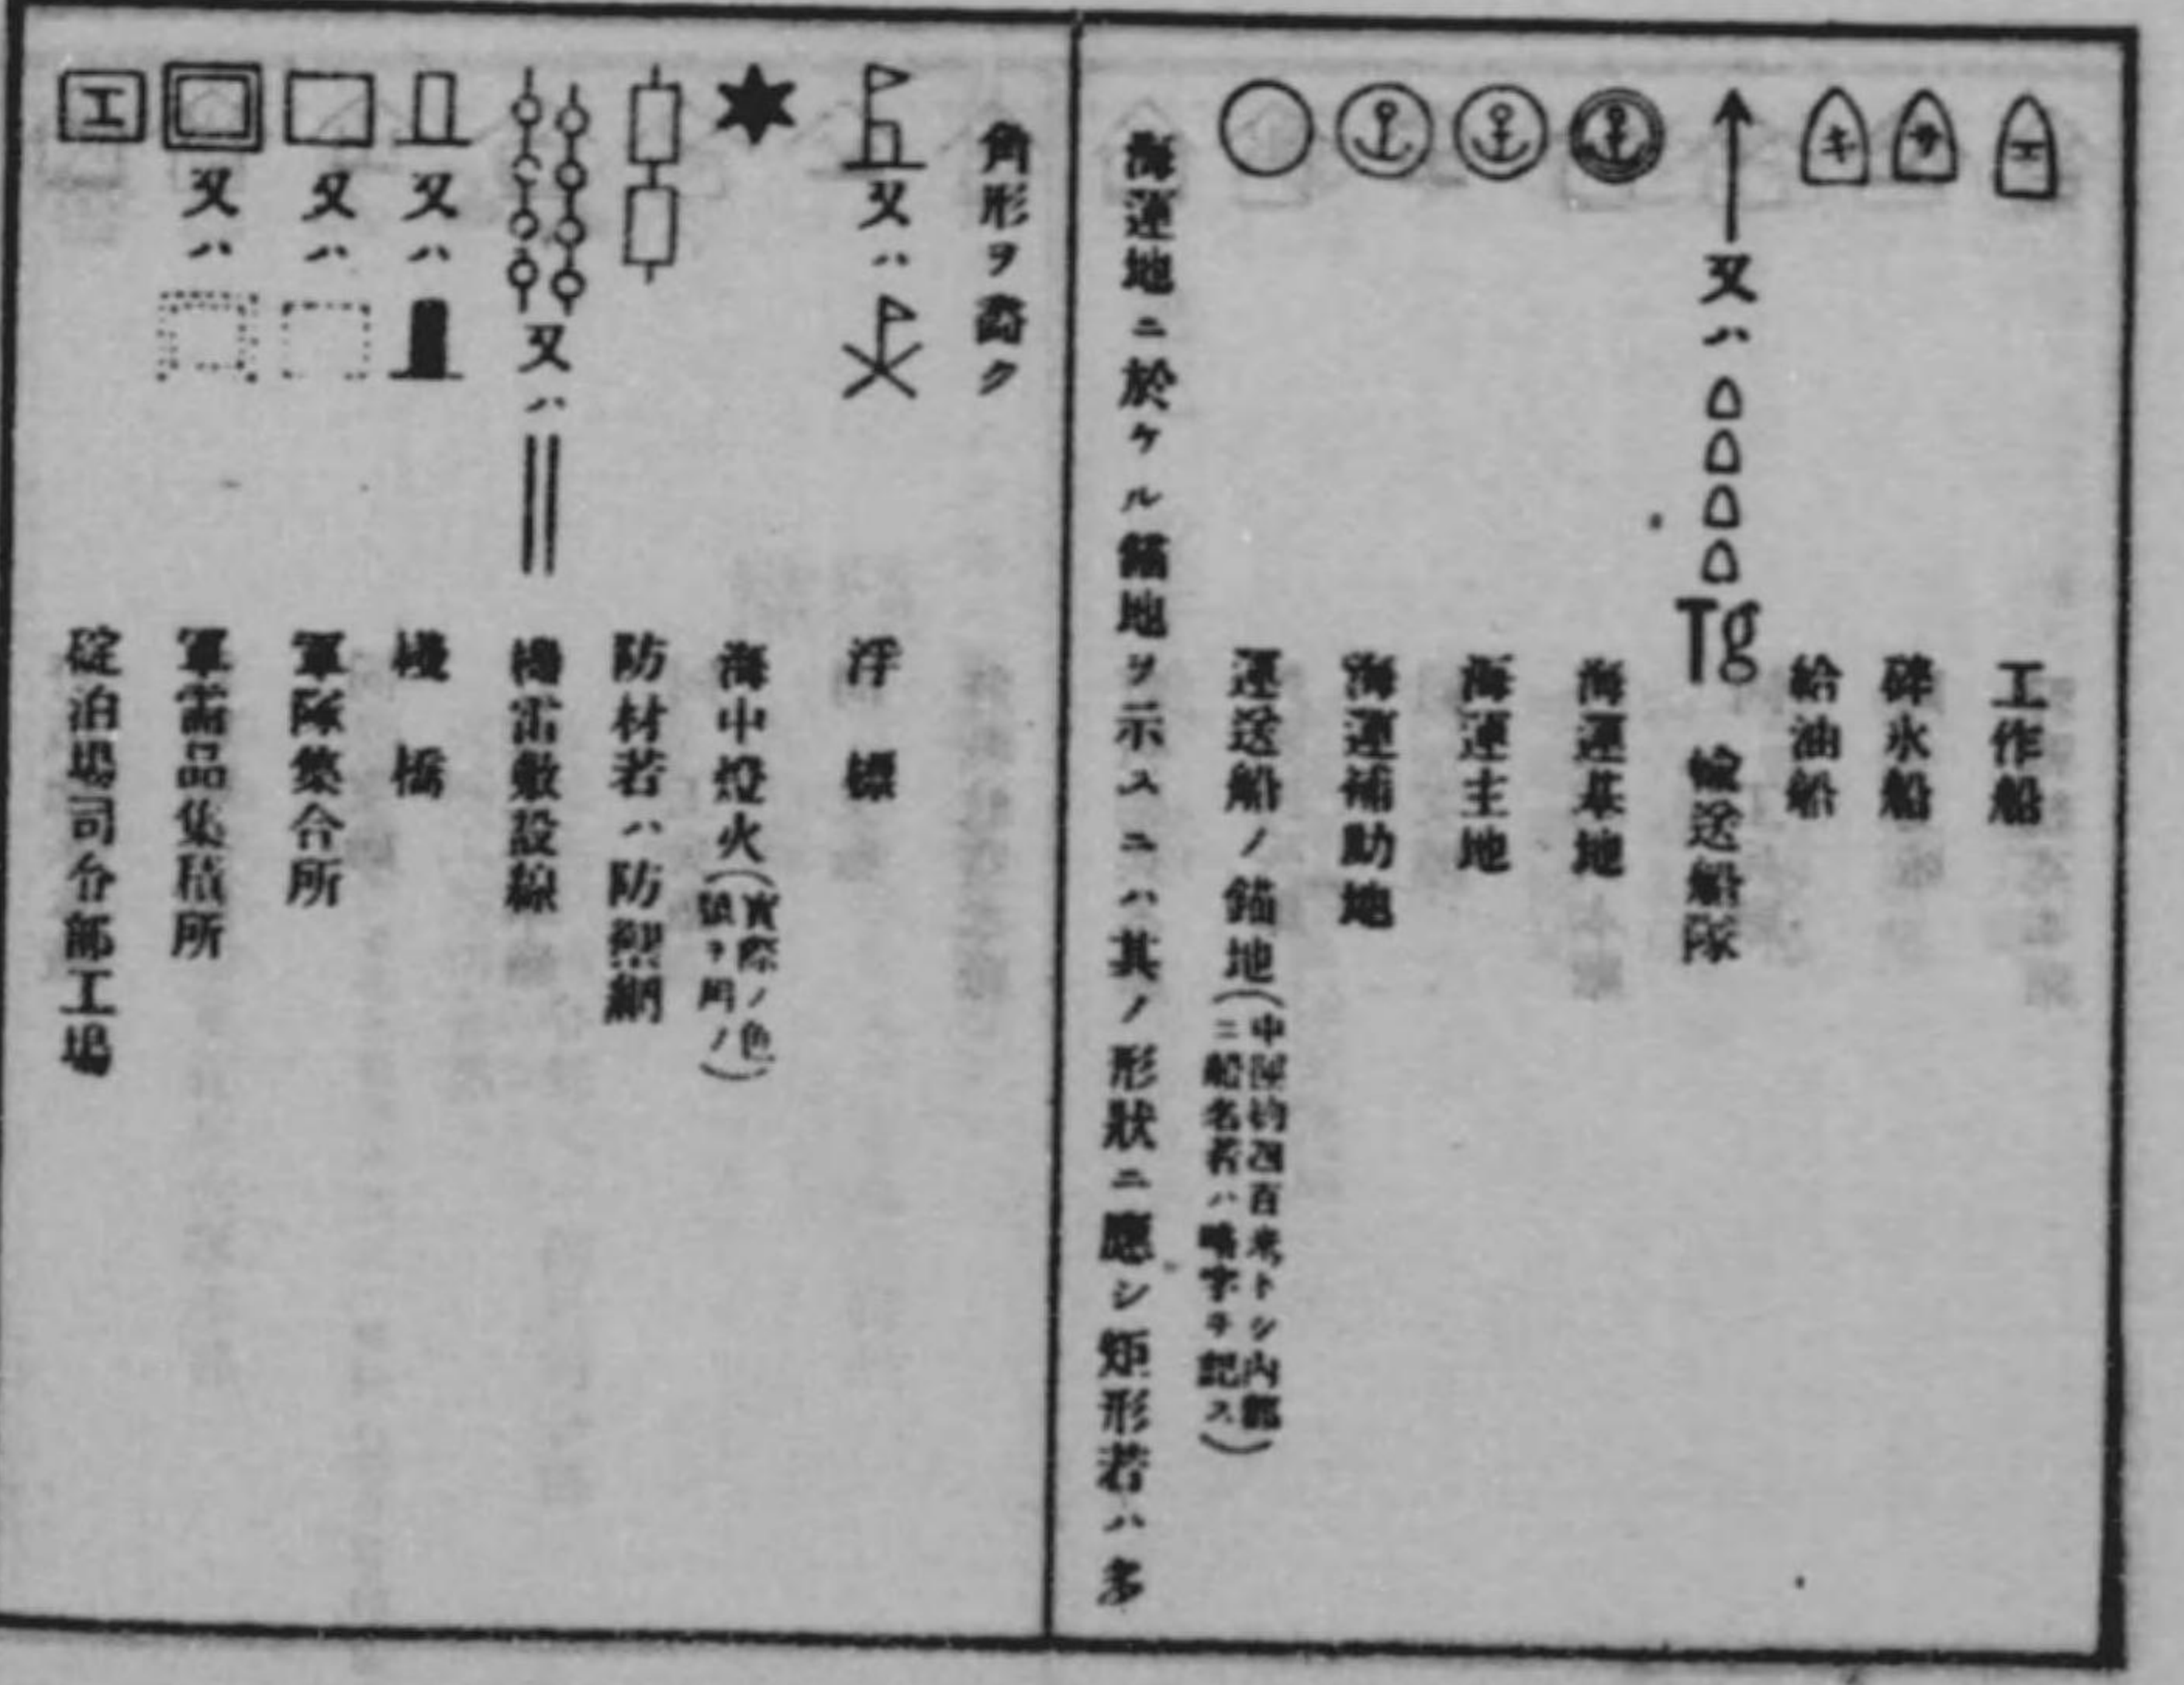 エ 工作船
サ 碎氷船
キ 給油船
又ハ Tg 輸送船隊
海運基地
海運主地
海運補助地
運送船ノ錨地(中徑約四百米トシ內部
ニ船名若ハ略字ヲ記ス)
海運地ニ於ケル錨地ヲ示スニハ其ノ形狀ニ應シ矩形若ハ多
角形ヲ畵ク
又ハ 浮標
海中燈火(實際ノ色
號ヲ用ノ)
防材若ハ防禦網
又ハ 機雷敷設線
又ハ 棧橋
又ハ 軍隊集合所
又ハ 軍需品集積所
工 碇泊場司令部工場